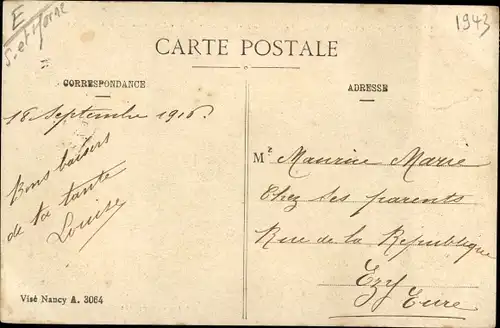 E
S. et Marne
1943
CARTE POSTALE
CORRESPONDANCE
18 Septembre 1916
Bons baisers
de ta tante
Louise
ADRESSE
Mr Maurice Marie
Chez ses parents
Rue de la République
Ezy
Eure
Visé Nancy A. 3064